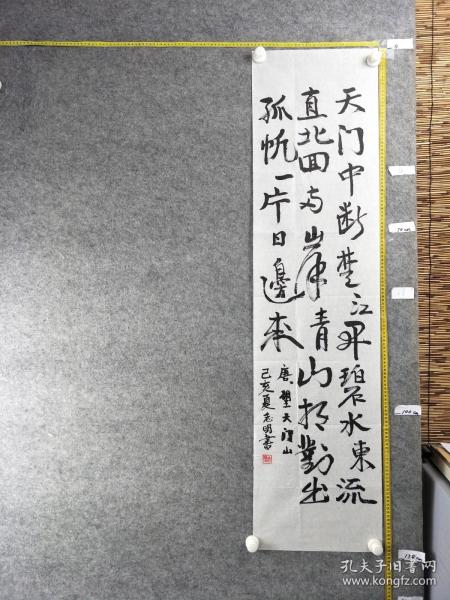 天门中断楚江开碧水東流
直北回两岸青山相對出
孤帆一片日邊来
唐望天门山
己亥夏志明書
孔夫子旧书网
www.kongfz.com